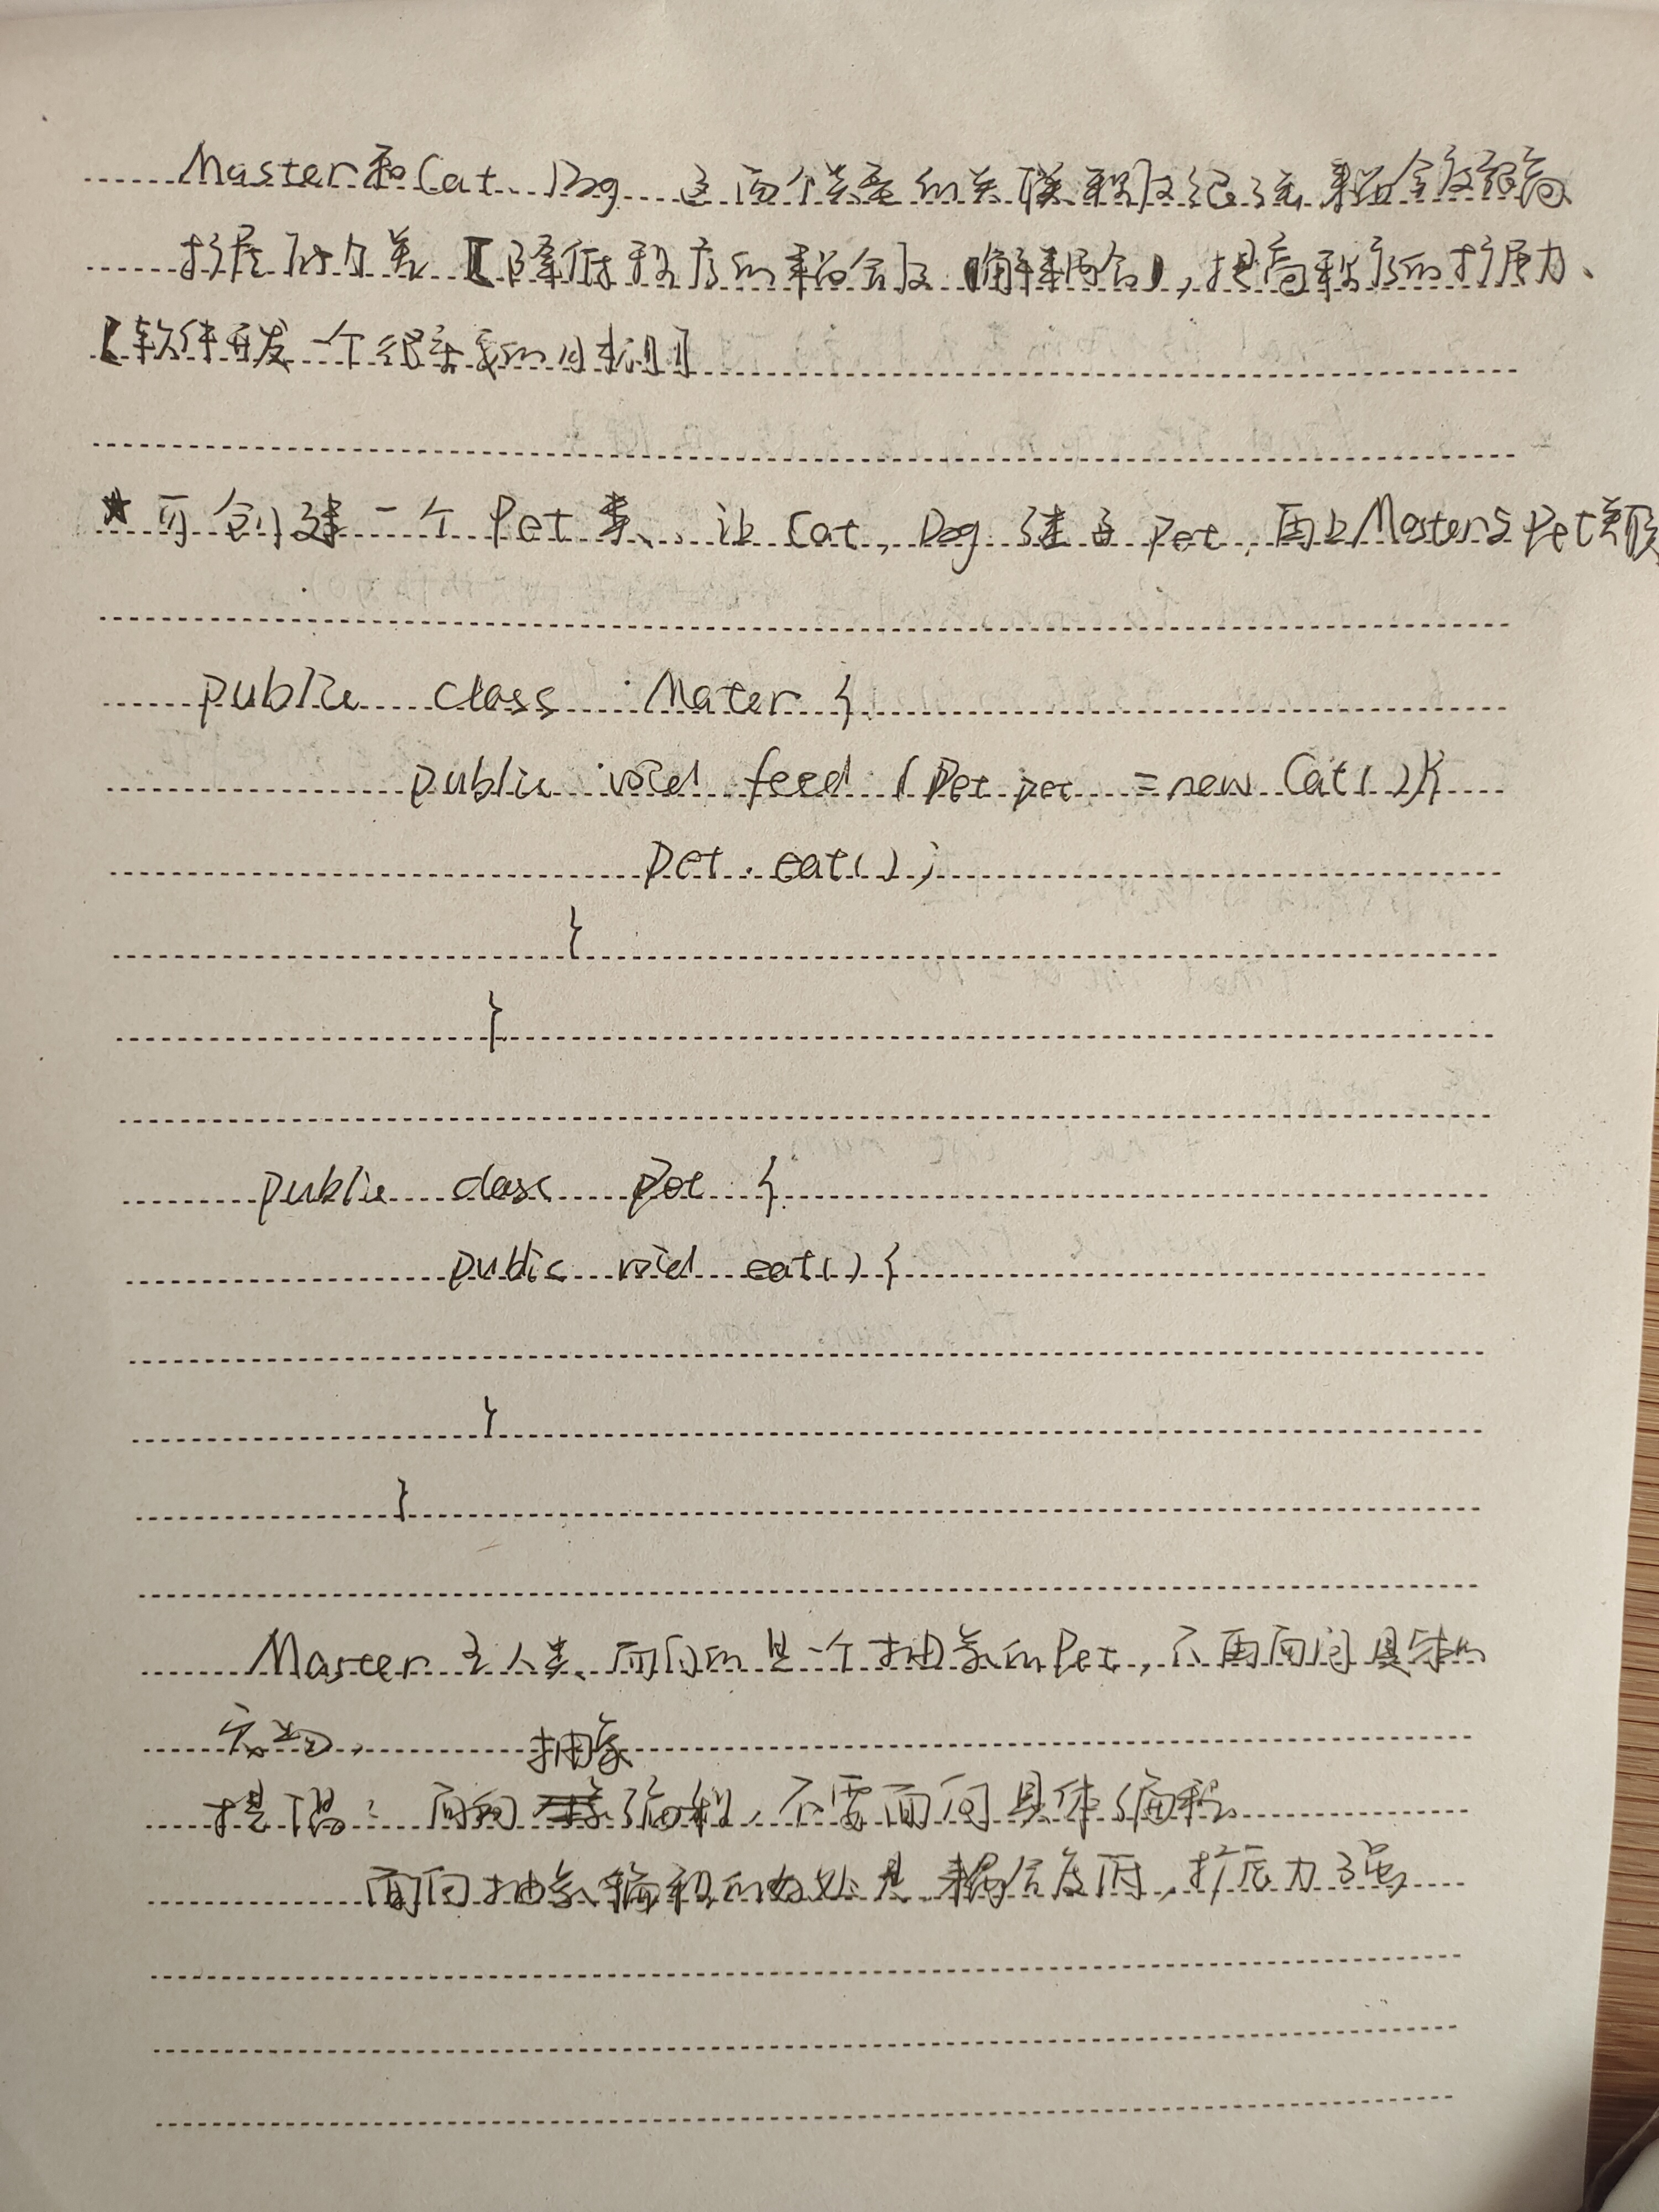 Master和Cat Dog 这两个类型的关联程度很强 耦合度很高
扩展力差【降低程序的耦合度(解耦合),提高程序的扩展力、
【软件开发一个很重要的目标】】
★ 可创建一个Pet类、让Cat,Dog继承Pet,再让Master与Pet关联
public class Mater {
public void feed (Pet pet =new Cat()){
pet.eat();
}
}
public class Pet {
public void eat() {
}
}
Master主人类、面向的是一个抽象的Pet,不再面向具体的
宠物,
抽象
提倡:面向编程,不要面向具体编程
面向抽象编程的好处是 耦合度低,扩展力强